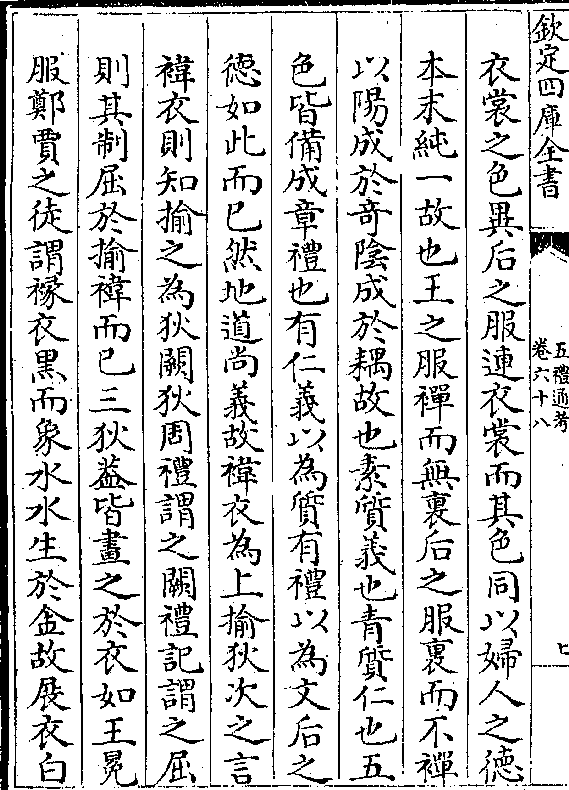 欽定四庫全書
五禮通考
卷六十八
七
衣裳之色異后之服連衣裳而其色同以婦人之徳
本末純一故也王之服襌而無裏后之服裏而不襌
以陽成於竒陰成於耦故也素質義也青質仁也五
色皆備成章禮也有仁義以為質有禮以為文后之
徳如此而已然地道尚義故褘衣為上揄狄次之言
褘衣則知揄之為狄闕狄周禮謂之闕禮記謂之屈
則其制屈於揄褘而已三狄葢皆畫之於衣如王冕
服鄭賈之徒謂褖衣黒而象水水生於金故展衣白